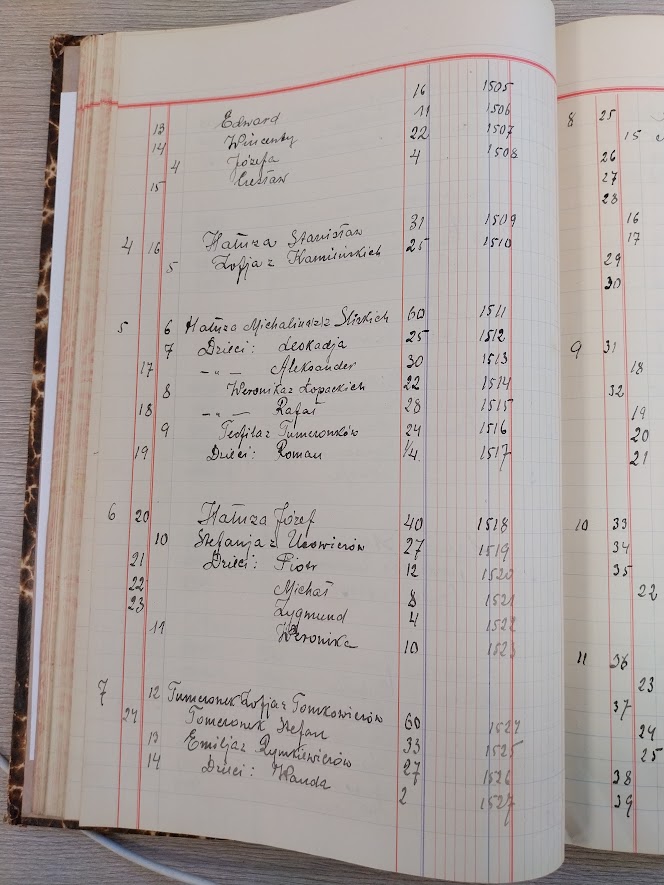 13 Edward 16 1505
14 Wincenty 11 1506
4 Józefa 22 1507
15 Czesław 4 1508
4 16 Hałuza Stanisław 31 1509
5 Zofja z Kamińskich 25 1510
5 6 Hałuza Michalina z Slizkich 60 1511
7 Dzieci: Leokadja 25 1512
17 -„- Aleksander 30 1513
8 Weronika z Łopackich 22 1514
18 -„- Rafał 28 1515
9 Teofila z Tumeronków 24 1516
19 Dzieci: Roman 1/4 1517
6 20 Hałuza Józef 40 1518
10 Stefanja z 27 1519
21 Dzieci: Piotr 12 1520
22 Michał 8 1521
23 Zygmund 4 1522
11 Weronika 10 1523
7 12 Tumeronek Zofja z Tomkowiczów 60 1524
24 Tomeronek Stefan 33 1525
13 Emilja z Rymkiewiczów 27 1526
14 Dzieci: Wanda 2 1527
8 25
15
26
27
28
16
17
29
30
9 31
18
32
19
20
21
10 33
34
35
22
11 36
23
37
24
25
38
39